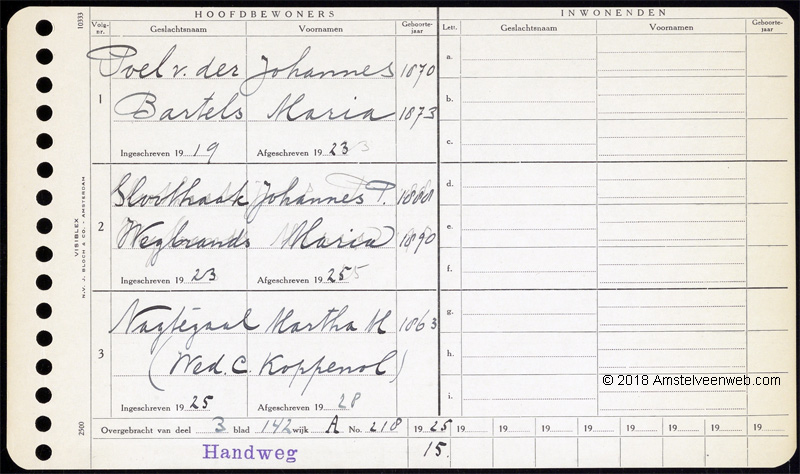 HOOFDBEWONERS
INWONENDEN
Volg-nr. Geslachtsnaam Voornamen Geboorte-jaar Lett. Geslachtsnaam Voornamen Geboorte-jaar
10333
1
Poel v. der Johannes 1870
Bartels Maria 1873
Ingeschreven 19 19 Afgeschreven 19 23
2
Sloothaak Johannes P. 1888
Wegbrands Maria 1890
Ingeschreven 19 23 Afgeschreven 19 25
3
Nagtegaal Martha M 1863
(Wed. C. Koppenol)
Ingeschreven 19 25 Afgeschreven 19 28
a.
b.
c.
d.
e.
f.
g.
h.
i.
VISIBLEX
N.V. J. BLOCH & CO. - AMSTERDAM
2500
© 2018 Amstelveenweb.com
Overgebracht van deel 3 blad 142 wijk A No. 218 19 25 19 19 19 19 19 19 19 19
Handweg 15.